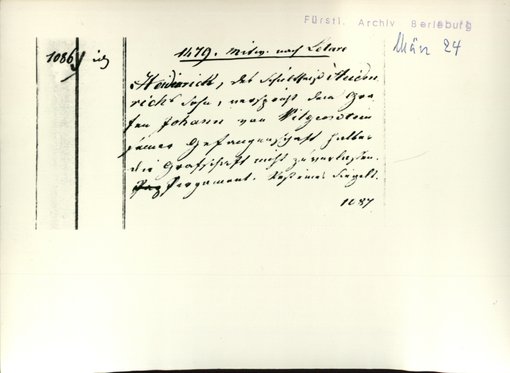 Fürstl. Archiv Berleburg
März 24
1086
1479. Mittw. nach Letare
Heinrich, des Schultheiß Hein
richs Sohn, verspricht dem Gra
fen Johann von Witgenstein
seiner Gefangenschaft halber
die Grafschaft nicht zu verlassen.
Pergament. Rest eines Siegels.
1087